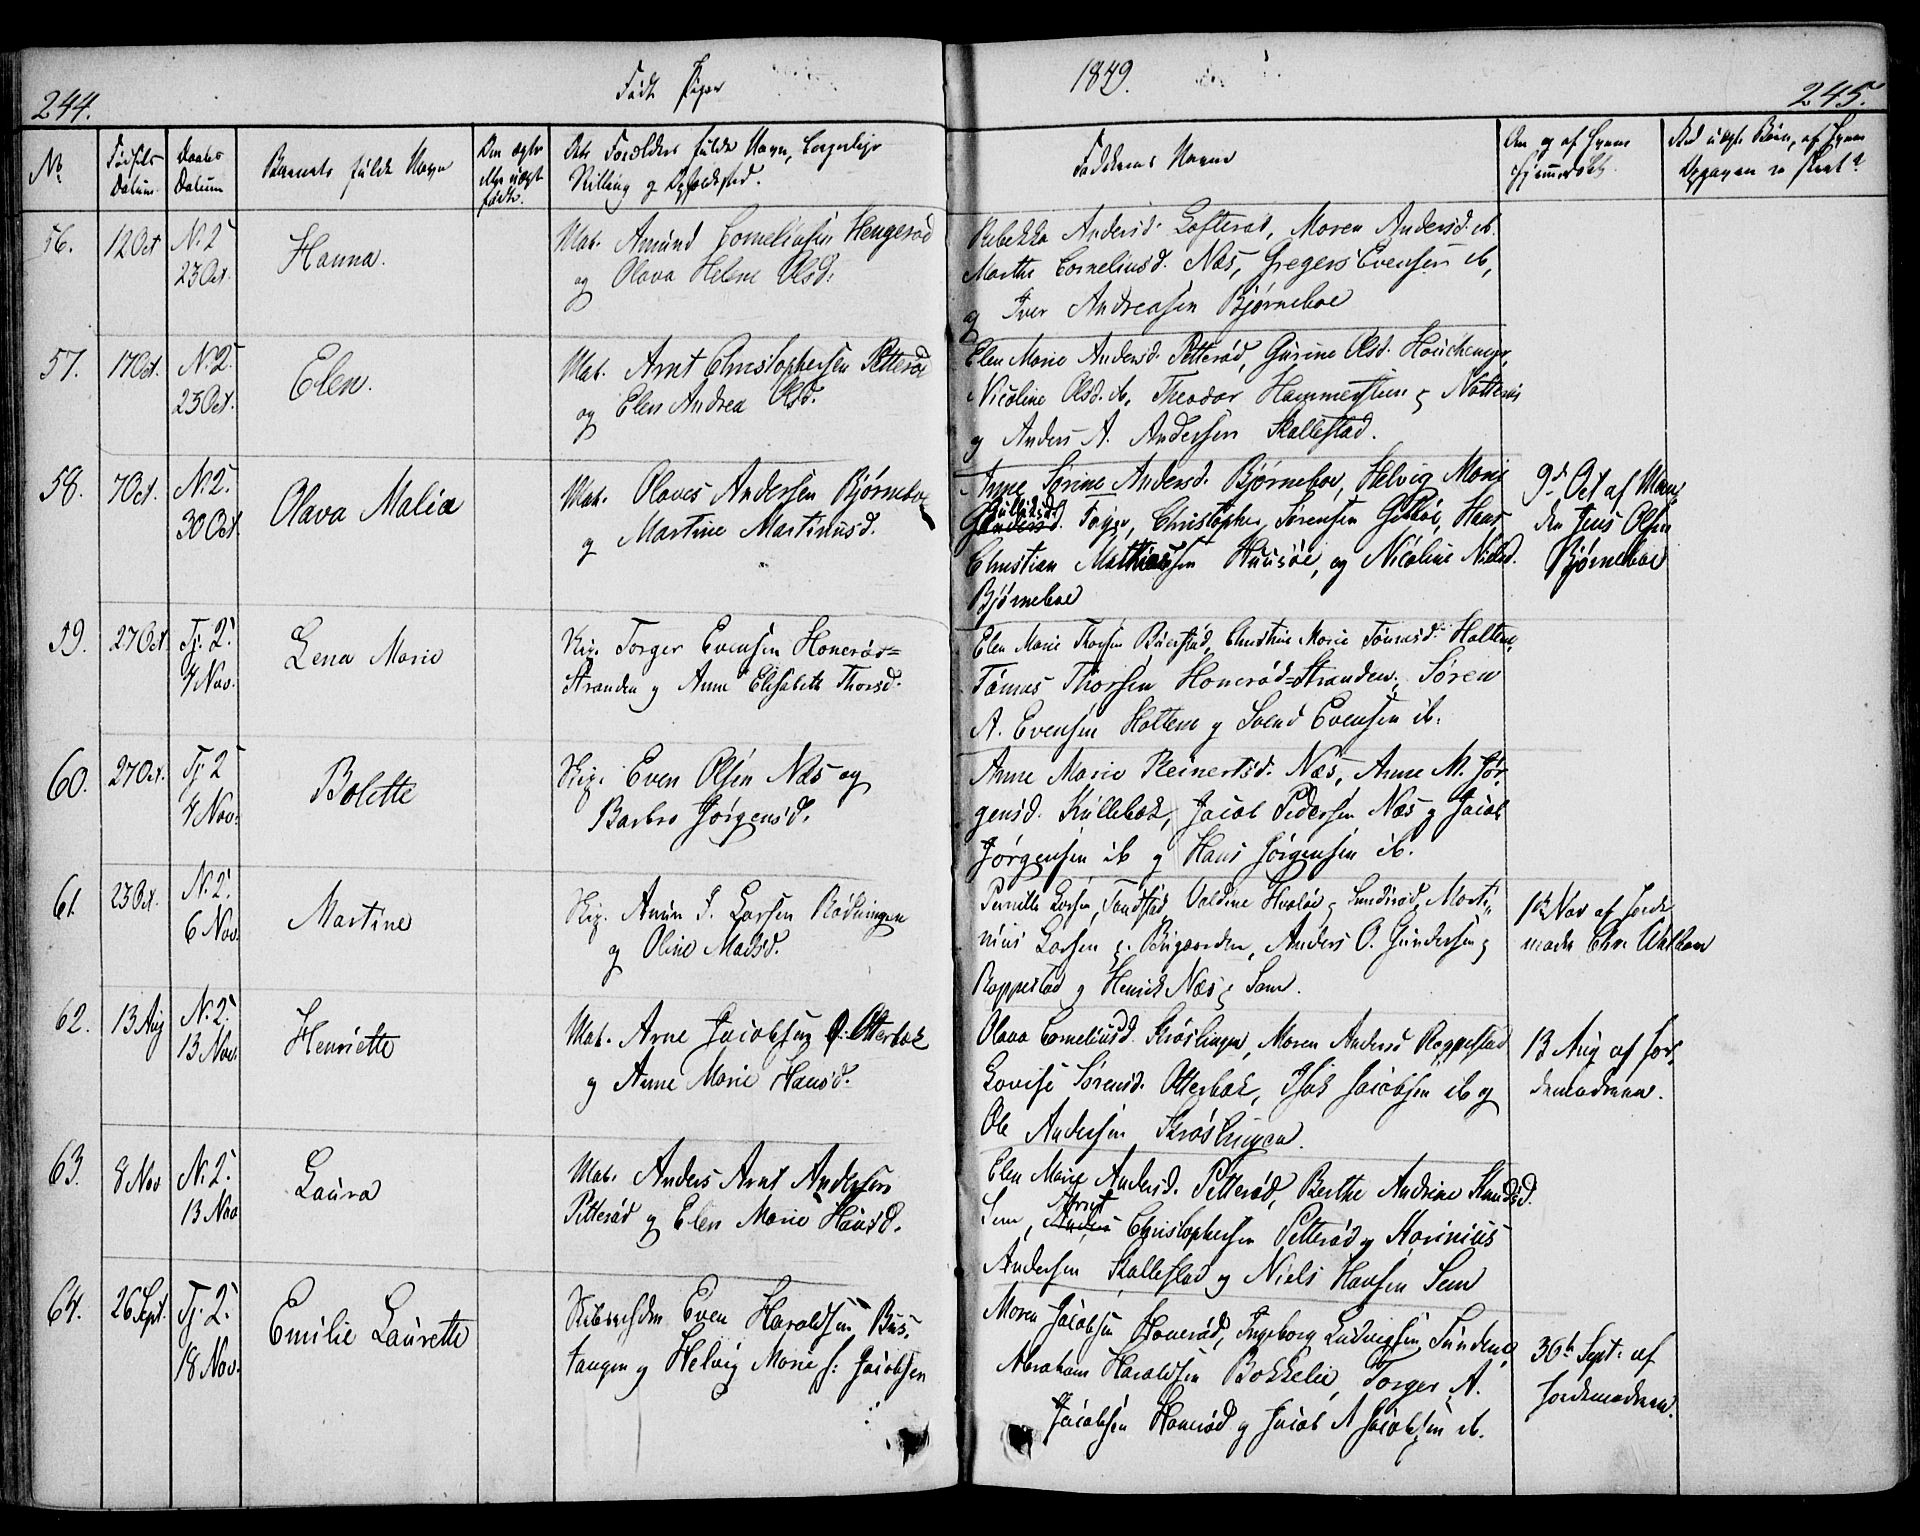 244.
Født Piger
1849.
245.
No.
Fødsels Datum.
Daabs Datum
Barnets fulde Navn
Om ægte eller uægte født.
Dets Forældres fulde Navn, borgerlige
Stilling og Opholdsted.
Faddernes Navne
Om og af hvem hjemmedøbt.
Ved uægte Børn, af hvem Opgaven er skeet?
56.
12 Oct
N. 2
23 Oct.
Hanna.
Mat. Amund Corneliusen Hengerød
og Olava Helene Olsd:
Rebekka Andersd. Lofterød, Maren Andersd. ib.
Marthe Corneliusd. Næs, Gregers Evensen ib,
og Iver Andreasen Bjørneboe
57.
17 Oct.
N. 2.
23 Oct.
Elen.
Mat. Arnt Christophersen Petterød
og Elen Andrea Olsd.
Elen Marie Andersd. Petterød, Gurine Olsd.
Nicoline Olsd. ib, Theodor Hammerstein
og Anders A. Andersen Skallestad.
58.
7 Oct.
N. 2.
30 Oct.
Olava Malia
Mat. Olaves Andersen Bjørneboe
og Martine Martinusd.
Anne Sørine Andersd. Bjørneboe, Helvig Marie
Fojn, Christopher Sørensen Gibbøe, Hans
Christian Mathiasen Huusøe, og Nicoline Nielsd.
Bjørneboe
9de Oct af Man
den Jens Olsen
Bjørneboe
59.
27 Oct
Tj. 2.
4 Nov.
Lena Marie
Skip. Torger Evensen Honerød=
Stranden og Anne Elisabeth Thorsd.
Elen Marie Thorsen Buerstad, Christine Marie Tomasd. Holtene,
Tomas Thorsen Honerød=Stranden, Søren
A. Evensen Holtene og Svend Evensen ib.
60.
27 Oct.
Tj 2
4 Nov.
Bolette
Skip. Even Olsen Næs og
Barbro Jørgensd.
Anne Marie Reinertsd. Næs, Anne M. Jør
gensd. Kullebæk, Jacob Pedersen Næs og Jacob
Jørgensen ib og Hans Jørgensen ib.
61.
23 Oct.
N. 2.
6 Nov
Martine
Skip. Anun J. Larsen Rødningen
og Oline Madsd.
Pernille Larsen, Tandstad, Valdine Hvaløe
nius Larsen, Anders O. Gundersen
Roppestad og Henrik Næs, Sem.
1ste Nov af Jorde
moder Chr.
62.
13 Aug
N. 2.
13 Nov.
Henriette
Mat. Arne Jacobsen Ø. Otterbæk
og Anne Marie Hansd.
Olava Corneliusd. Krøslingen, Maren Andersd Roppestad
Lovise Sørensd. Otterbæk, Isak Jacobsen ib og
Ole Andersen Krøslingen.
13 Aug af Jor-
demoderen.
63.
8 Nov
N. 2.
13 Nov
Laura
Mat. Anders Arnt Andersen
Petterød og Elen Marie Hansd.
Elen Marie Andersd. Petterød, Berthe Andrine Knudsd.
Sem, Arnt Christophersen Petterød og Marinius
Andersen Skallestad og Niels Hansen Sem
64.
26 Sept.
Tj. 2.
18 Nov.
Emilie Laurette
Skibsreder Even Haroldsen Bus,
tangen og Helvig Marie f: Jacobsen
Maren Jacobsen Honerød, Ingeborg Ludvigsen Sundene,
Abraham Haroldsen Bekkelie, Torger A.
Jacobsen Honerød og Jacob A Jacobsen ib.
30te Sept. af
Jordemoderen.